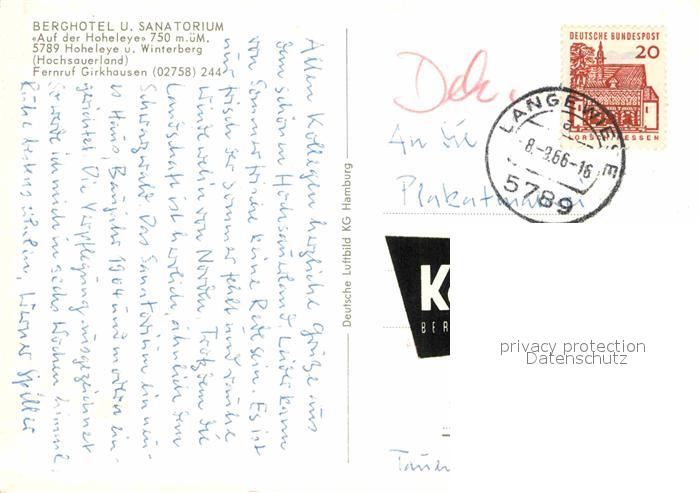 BERGHOTEL U. SANATORIUM
«Auf der Hoheleye» 750 m.üM.
5789 Hoheleye u. Winterberg
(Hochsauerland)
Fernruf Girkhausen (02758) 244
Allen Kollegen herzliche Grüße aus
dem schönen Hochsauerland. Leider kann
von Sommerfrische keine Rede sein. Es ist
nur frisch der Sommer fehlt und rauhe
Winde wehn von Norden. Trotzdem die
Landschaft ist herrlich, ähnlich dem
Schwarzwald. Das Sanatorium ein neu-
es Haus, Baujahr 1964 und modern ein-
gerichtet. Die Verpflegung ausgezeichnet
So werde ich mich in sechs Wochen
Ruhe
Deutsche Luftbild KG Hamburg
DEUTSCHE BUNDESPOST
20
LORSCH/HESSEN
LANGEWIESE
8.-9.66-16
5789
An die
BER
privacy protection
Datenschutz